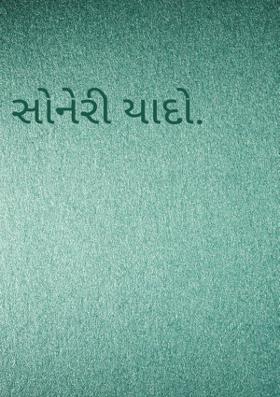 સોનેરી યાદો.